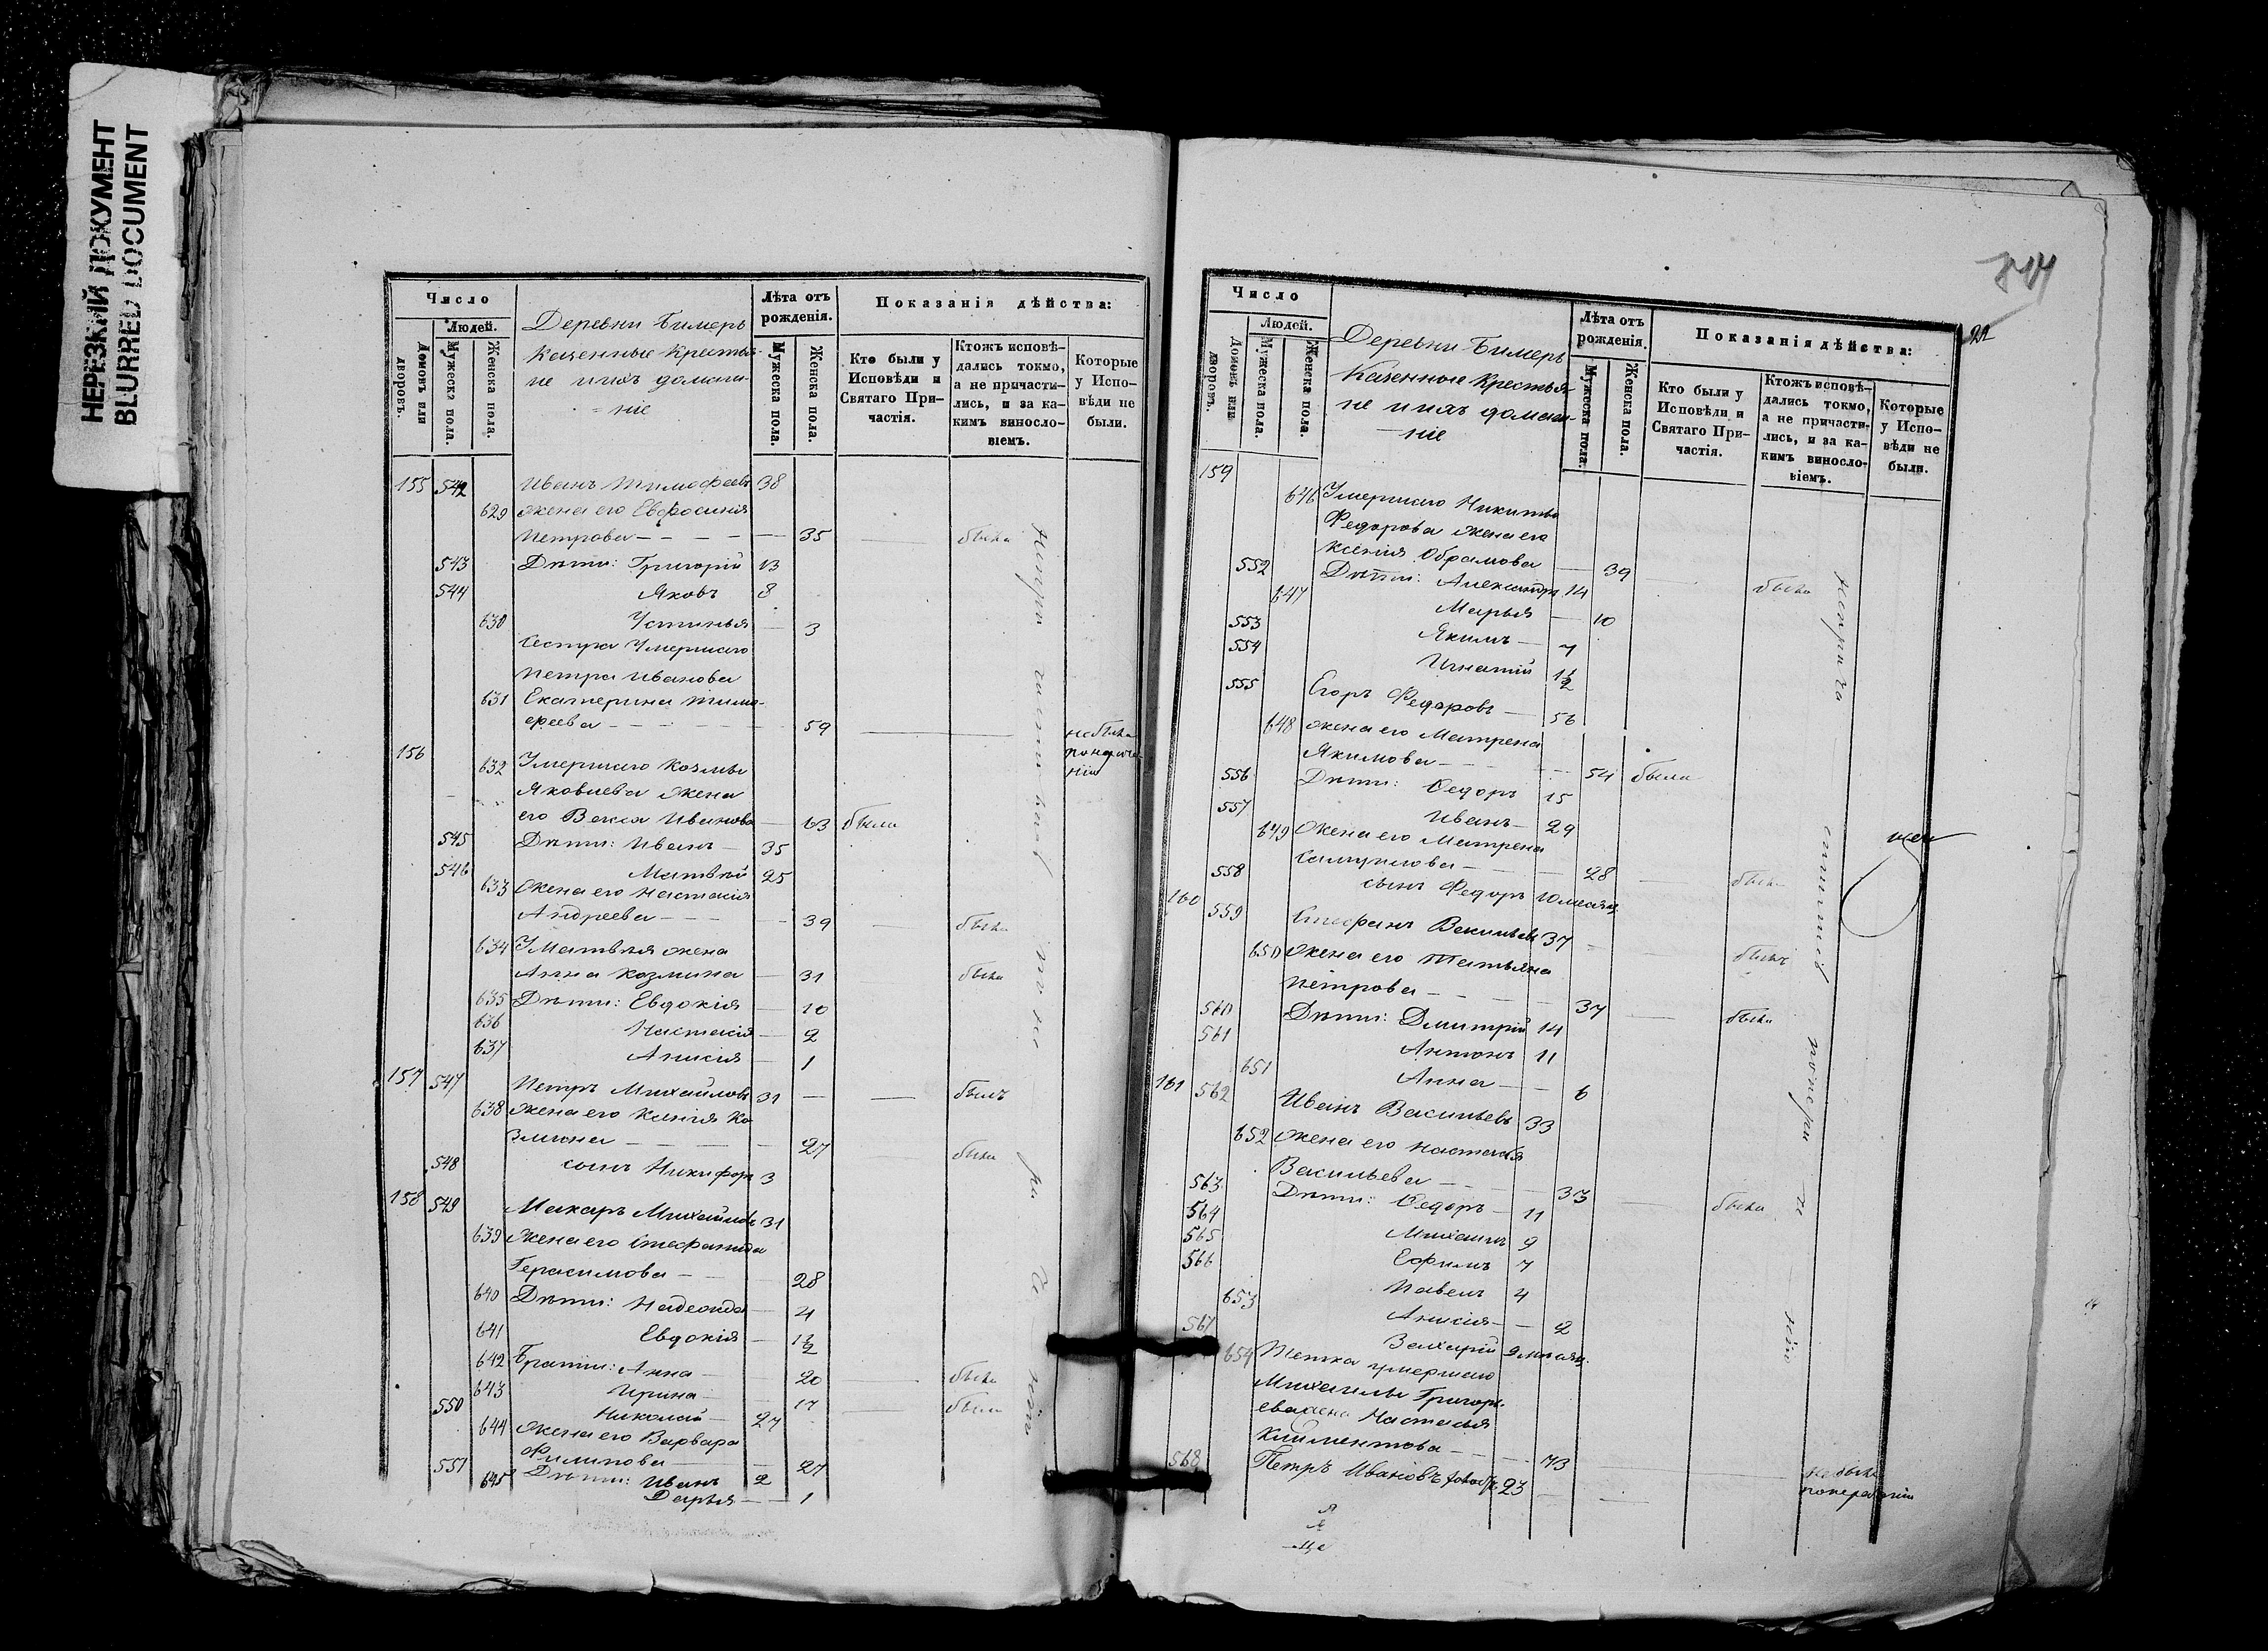 НЕРЕЗКИЙ ДОКУМЕНТ
BLURRED DOCUMENT
Число
Людей.
Домовъ или дворовъ.
Мужеска пола.
Женска пола.
Деревни Бимеръ
Казенные Крестья-
не и ихъ домаш-
ніе
Лѣта отъ рожденія.
Мужеска пола.
Женска пола.
Показанія дѣйства:
Кто были у Исповѣди и Святаго При-частія.
Ктожъ исповѣ-дались токмо, а не причасти-лись, и за ка-кимъ винословіемъ.
Которые у Испо-вѣди не были.
155 542 Иванъ Тимофеевъ 38
629 жена его Евфросинія
Петрова 35 была
543 Дѣти: Григорій 13
544 Яковъ 8
630 Устинья 3
Сестра Умершаго
Петра Иванова
631 Екатерина Тимо-
феева 59 не была
156 632 Умершаго Козмы
Яковлева жена
его Васса Иванова 63 была
545 Дѣти: Иванъ 35
546 Матвѣй 25
633 Жена его Настасія
Андреева 39 была
634 У Матвѣя жена
Анна Козмина 31 была
635 Дѣти: Евдокія 10
636 Настасія 2
637 Анисія 1
157 547 Петръ Михайловъ 31 былъ
638 жена его Ксенія Ко
змина 27 была
548 сынъ Никифоръ 3
158 549 Макаръ Михайловъ 31
639 Жена его Стефанида
Герасимова 28
640 Дѣти: Надежда 4
641 Евдокія 1½
642 Братіи: Анна 20 была
643 Ирина 17 была
550 Николай 27
644 Жена его Варвара
Филипова 27
551 Дѣти: Иванъ 2
645 Дарья 1
22
Число
Людей.
Домовъ или дворовъ.
Мужеска пола.
Женска пола.
Деревни Бимеръ
Казенные Крестья-
не и ихъ домаш-
ніе
Лѣта отъ рожденія.
Мужеска пола.
Женска пола.
Показанія дѣйства:
Кто были у Исповѣди и Святаго При-частія.
Ктожъ исповѣ-дались токмо, а не причасти-лись, и за ка-кимъ винословіемъ.
Которые у Испо-вѣди не были.
159 646 Умершаго Никиты
Федорова жена его
Ксенія Абрамова 39 была
552 Дѣти: Александръ 14
647 Марья 10
553 Якимъ 7
554 Игнатій 1½
555 Егоръ Федоровъ 56
648 жена его Матрена
Якимова 54 была
556 Дѣти: Федоръ 15
557 Иванъ 29
649 Жена его Матрена
Самуилова 28 была
558 сынъ Федоръ 10 месяц.
160 559 Стефанъ Васильевъ 37 былъ
650 Жена его Татьяна
Петрова 37 была
560 Дѣти: Дмитрій 14
561 Антонъ 11
651 Анна 6
161 562 Иванъ Васильевъ 33
652 жена его Настасья
Васильева 33 была
563 Дѣти: Федоръ 11
564 Михаилъ 9
565 Ефимъ 7
566 Павелъ 4
653 Анисія 2
567 Захарій 9 месяц.
654 Тетка умершаго
Михаилы Григорь-
ева жена Настасья
Климентова 73 не была
568 Петръ Ивановъ 23